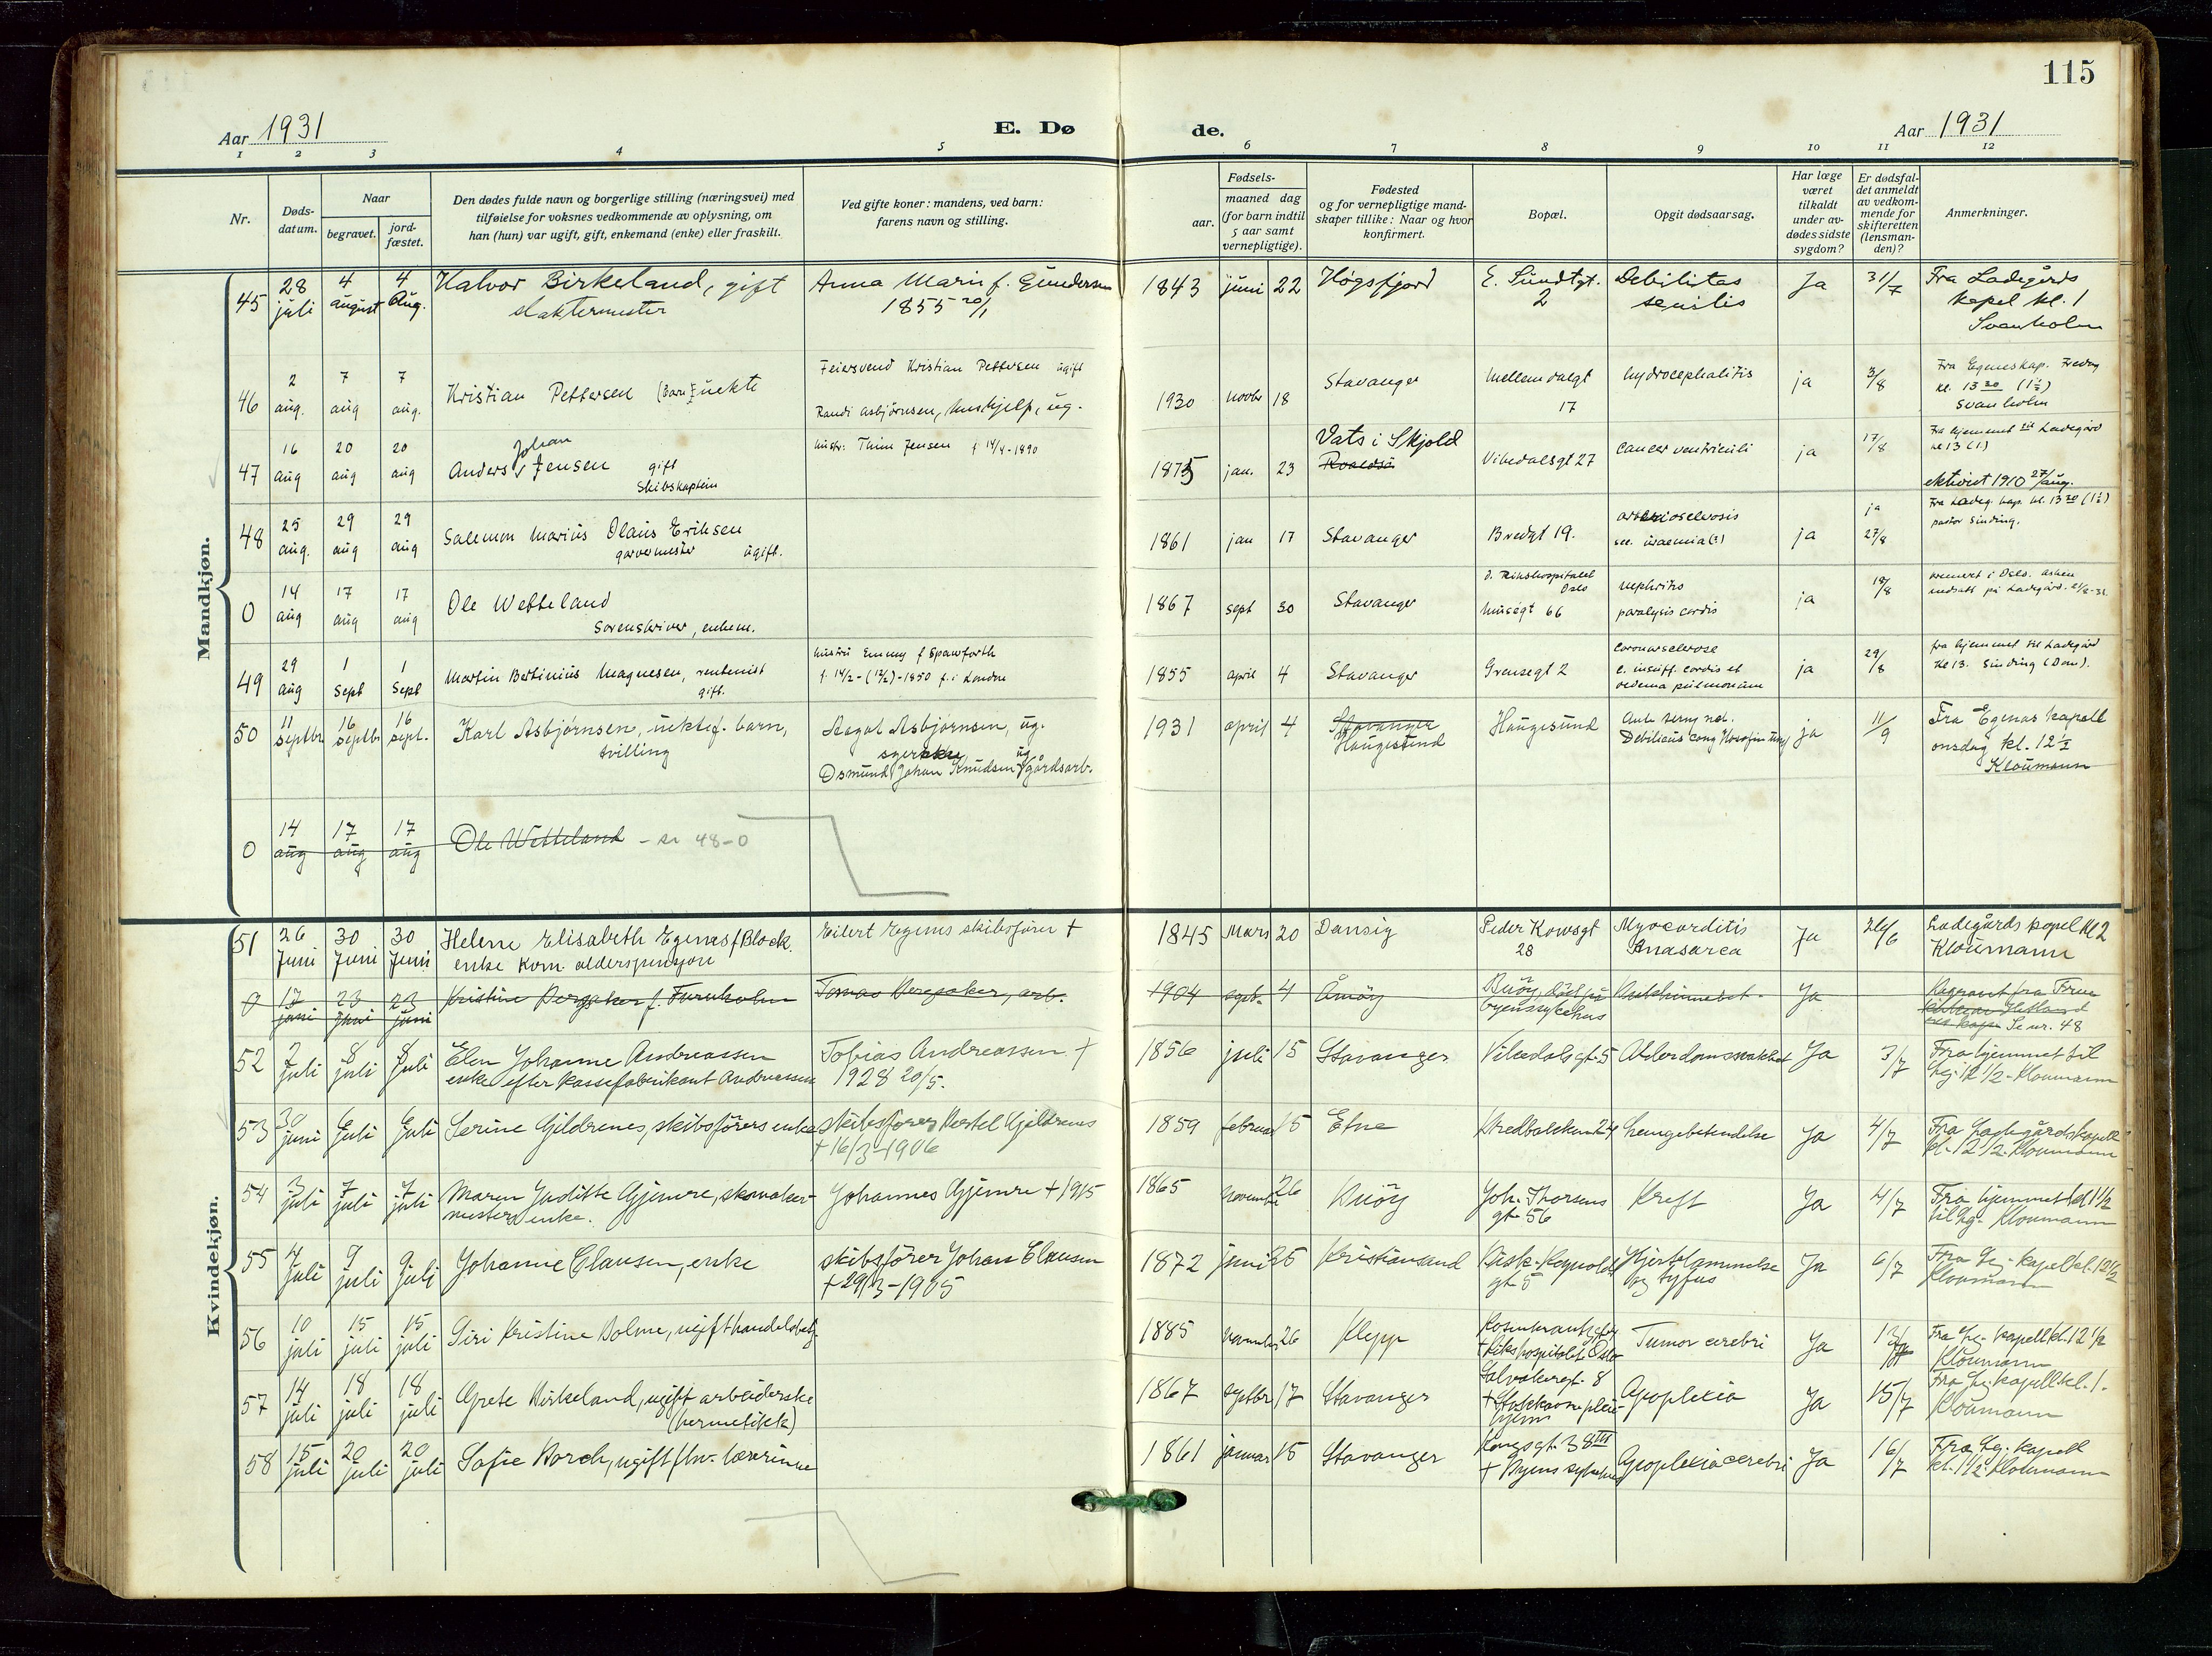 115
Aar 1931
E. Dø
de.
Aar 1931
1 2 3 4 5 6 7 8 9 10 11 12
Nr.
Døds-
datum.
Naar
begravet.
jord-
fæstet.
Den dødes fulde navn og borgerlige stilling (næringsvei) med
tilføielse for voksnes vedkommende av oplysning, om
han (hun) var ugift, gift, enkemand (enke) eller fraskilt.
Ved gifte koner: mandens, ved barn:
farens navn og stilling.
Fødsels-
aar.
maaned dag
(for barn indtil
5 aar samt
vernepligtige).
Fødested
og for vernepligtige mand-
skaper tillike: Naar og hvor
konfirmert.
Bopæl.
Opgit dødsaarsag.
Har læge
været
tilkaldt
under av-
dødes sidste
sygdom?
Er dødsfal-
det anmeldt
av vedkom-
mende for
skifteretten
(lensman-
den)?
Anmerkninger.
Mandkjøn.
45 28 juli 4 august 4 Aug. Halvor Birkeland, gift
slaktermester
Anna Marie f. Gundersen
1855 20/1
1843 juni 22 Høgsfjord E. Sundtgt. 2 Debilitas senilis Ja 31/7 Fra Ladegårds
kapel kl. 1
Svanholm
46 2 aug. 7 aug 7 aug. Kristian Pettersen (Barn) uekte
Feiersvend Kristian Pettersen ugift
Randi Asbjørnsen, hushjelp, ug.
1930 novbr 18 Stavanger Mellemdalgt 17 hydrocephalitis ja 3/8 Fra Egeneskap. Fredag
kl. 13 30 (1½)
Svanholm
47 16 aug 20 aug 20 aug Anders Johan Jensen gift
Skibskaptein
hustr: Thim Jensen f 14/4-1890
1875 jan. 23 Vats i Skjold
Vikedalsgt 27 cancer ventriculi ja 17/8 Fra hjemmet til Ladegård
kl 13 (1)
ektviet 1910 27/aug.
48 25 aug. 29 aug 29 aug Salemon Marius Olaus Eriksen
garvermester ugift.
1861 jan 17 Stavanger Bredgt 19. arteriosclerosis
sec. uraemia (?) ja ja 27/8 Fra Ladeg. kap. kl. 13 30 (1½)
pastor Sinding.
0 14 aug 17 aug 17 aug Ole Wetteland
Sorenskriver, enkem.
1867 sept 30 Stavanger d. Rikshospitalet
Oslo
Musegt 66 nephritis
paralysis cordis ja 18/8 kremert i Oslo. asken
nedsatt på Ladegård.
49 29 aug 1 sept 1 sept Martin Bertinius Magnesen, rentenist
gift.
hustru Emmy f Spawforth
f. 14/2-(12/2)-1850 f. i London
1855 april 4 Stavanger Grensegt 2 coronarsclerose
c. insuff. cordis et
oedema pulmonum ja 29/8 fra hjemmet til Ladegård
kl 13. Sinding (Dom).
50 11 septbr 16 septbr 16 sept. Karl Asbjørnsen, uektef. barn,
tvilling
Aagot Asbjørnsen, ug.
syerske
Osmund Johan Knudsen ug gårdsarb.
1931 april 4 Stavanger
Haugesund Haugesund
ja 11/9 Fra Egenes kapell
onsdag kl. 12½
Kloumann
0 14 aug 17 aug 17 aug Ole Wetteland - se 48-0
Kvindekjøn.
51 26 Juni 30 Juni 30 Juni Helene Elisabeth Egenes f Block
enke kom. alderspensjon
Eilert Egenes skibsfører †
1845 Mars 20 Dansig Peder Kowsgt
28 Myocarditis
Anasarca Ja 26/6 Ladegårds kapel kl 2
Kloumann
0 17 juni 23 juni 23 juni Kristine Bergsaker f. Furuholm
Tomas Bergsaker, arb.
1904 sept. 4 Åmøy Buøy, død på
byens sykehus
Ja
Se nr. 48
52 2 juli 8 juli 8 juli Elen Johanne Andreassen
enke efter kassefabrikant Andreassen
Tobias Andreassen †
1928 20/5.
1856 juli 15 Stavanger Vikedalsgt. 5 Alderdomssvakhet Ja 3/7 Fra hjemmet til
Lg. 12 1/2 - Kloumann
53 30 juni 6 juli 6 juli Serine Gildrenes, skibsførers enke
skibsfører Bertel Gjeldrenes
† 16/3-1906
1859 februar 15 Etne Bredbakken 24 Lungebetendelse Ja 4/7 Fra Ladegårds kapell
kl. 12 1/2. Kloumann
54 3 juli 7 juli 7 juli Maren Juditte Gjemre, skomaker-
mesters enke.
Johannes Gjemre † 1915
1865 november 26 Buöy Joh. Thorsens
gt. 56 Kreft Ja 4/7 Fra hjemmet kl 1 1/2
til Lg. Kloumann
55 4 juli 9 juli 9 juli Johanne Clausen, enke
skibsfører Johan Clausen
† 29/3-1905
1872 juni 25 Kristiansand Bisk. Reynolds
gt 5 Hjertelammelse
og tyfus Ja 6/7 Fra Lg. kapel kl. 12 1/2
Kloumann
56 10 juli 15 juli 15 juli Siri Kristine Bolme, ugift handelsbetj.
1885 november 26 Klepp
† Rikshospitalet Oslo Tumor cerebri Ja Fra Lg. kapell kl. 12 1/2
Kloumann
57 14 juli 18 juli 18 juli Grete Birkeland, ugift arbeiderske
(hermetikk)
1867 septbr 17 Stavanger
Apoplexia Ja 15/7 Fra Lg. kapell kl. 1.
Kloumann
58 15 juli 20 juli 20 juli Sofie Borch, ugift fhv. lærerinne
1861 januar 15 Stavanger Kongsgt. 38 III
† Byens sykehus Apoplexia cerebri Ja 16/7 Fra Lg. kapell
kl. 1 1/2. Kloumann